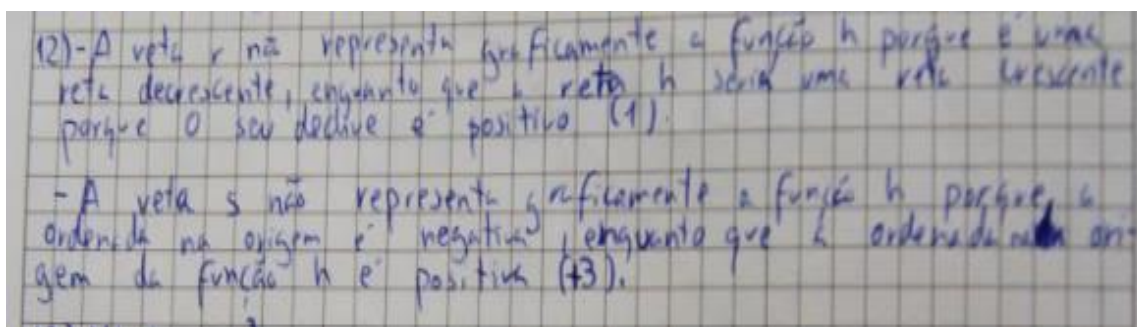 12)-A reta r não representa graficamente a função h porque é uma
reta decrescente, enquanto que a reta h seria uma reta crescente
porque o seu declive é positivo (1).
-A reta s não representa graficamente a função h porque, a
ordenada na origem é negativa, enquanto que a ordenada na ori-
gem da função h é positiva (+3).